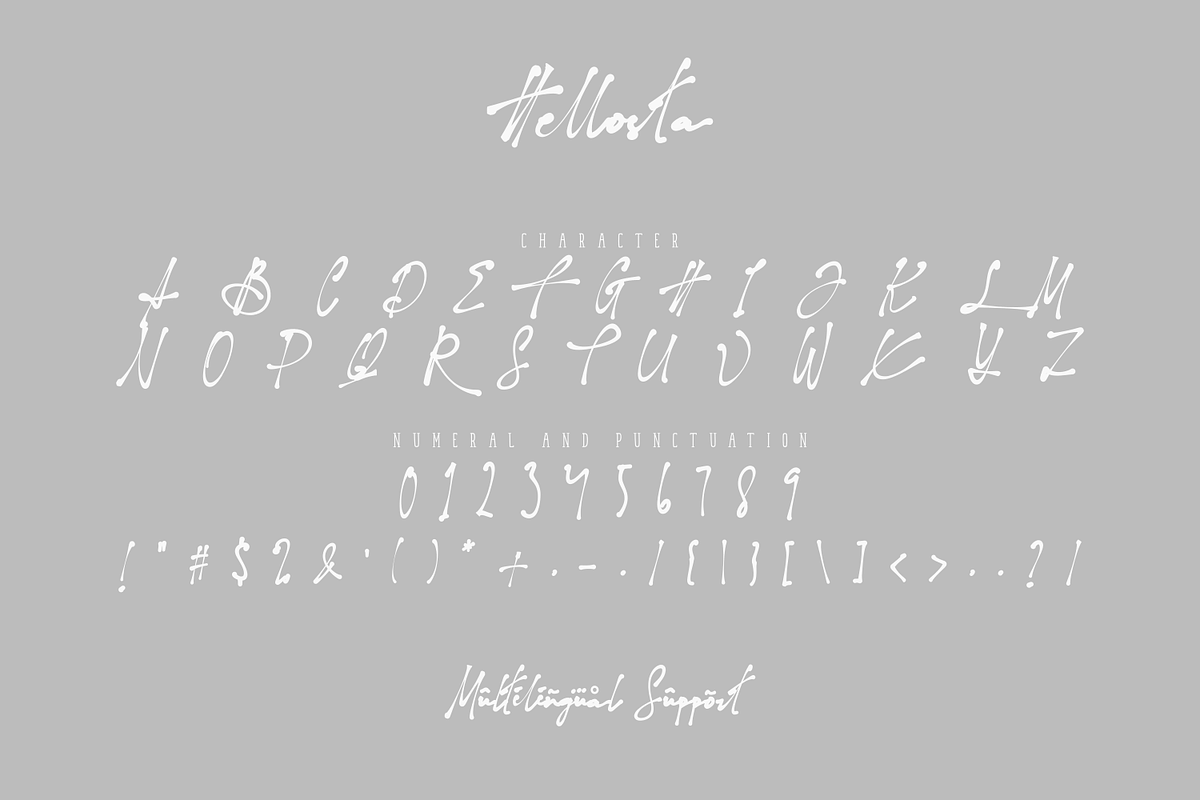 Hellosta
CHARACTER
A B C D E F G H I J K L M
N O P Q R S T U V W X Y Z
NUMERAL AND PUNCTUATION
0 1 2 3 4 5 6 7 8 9
! " # $ & ' ( ) * + . - . / { | } [ \ ] < > . . ? /
Mûltélíñgüål Sûppõrt